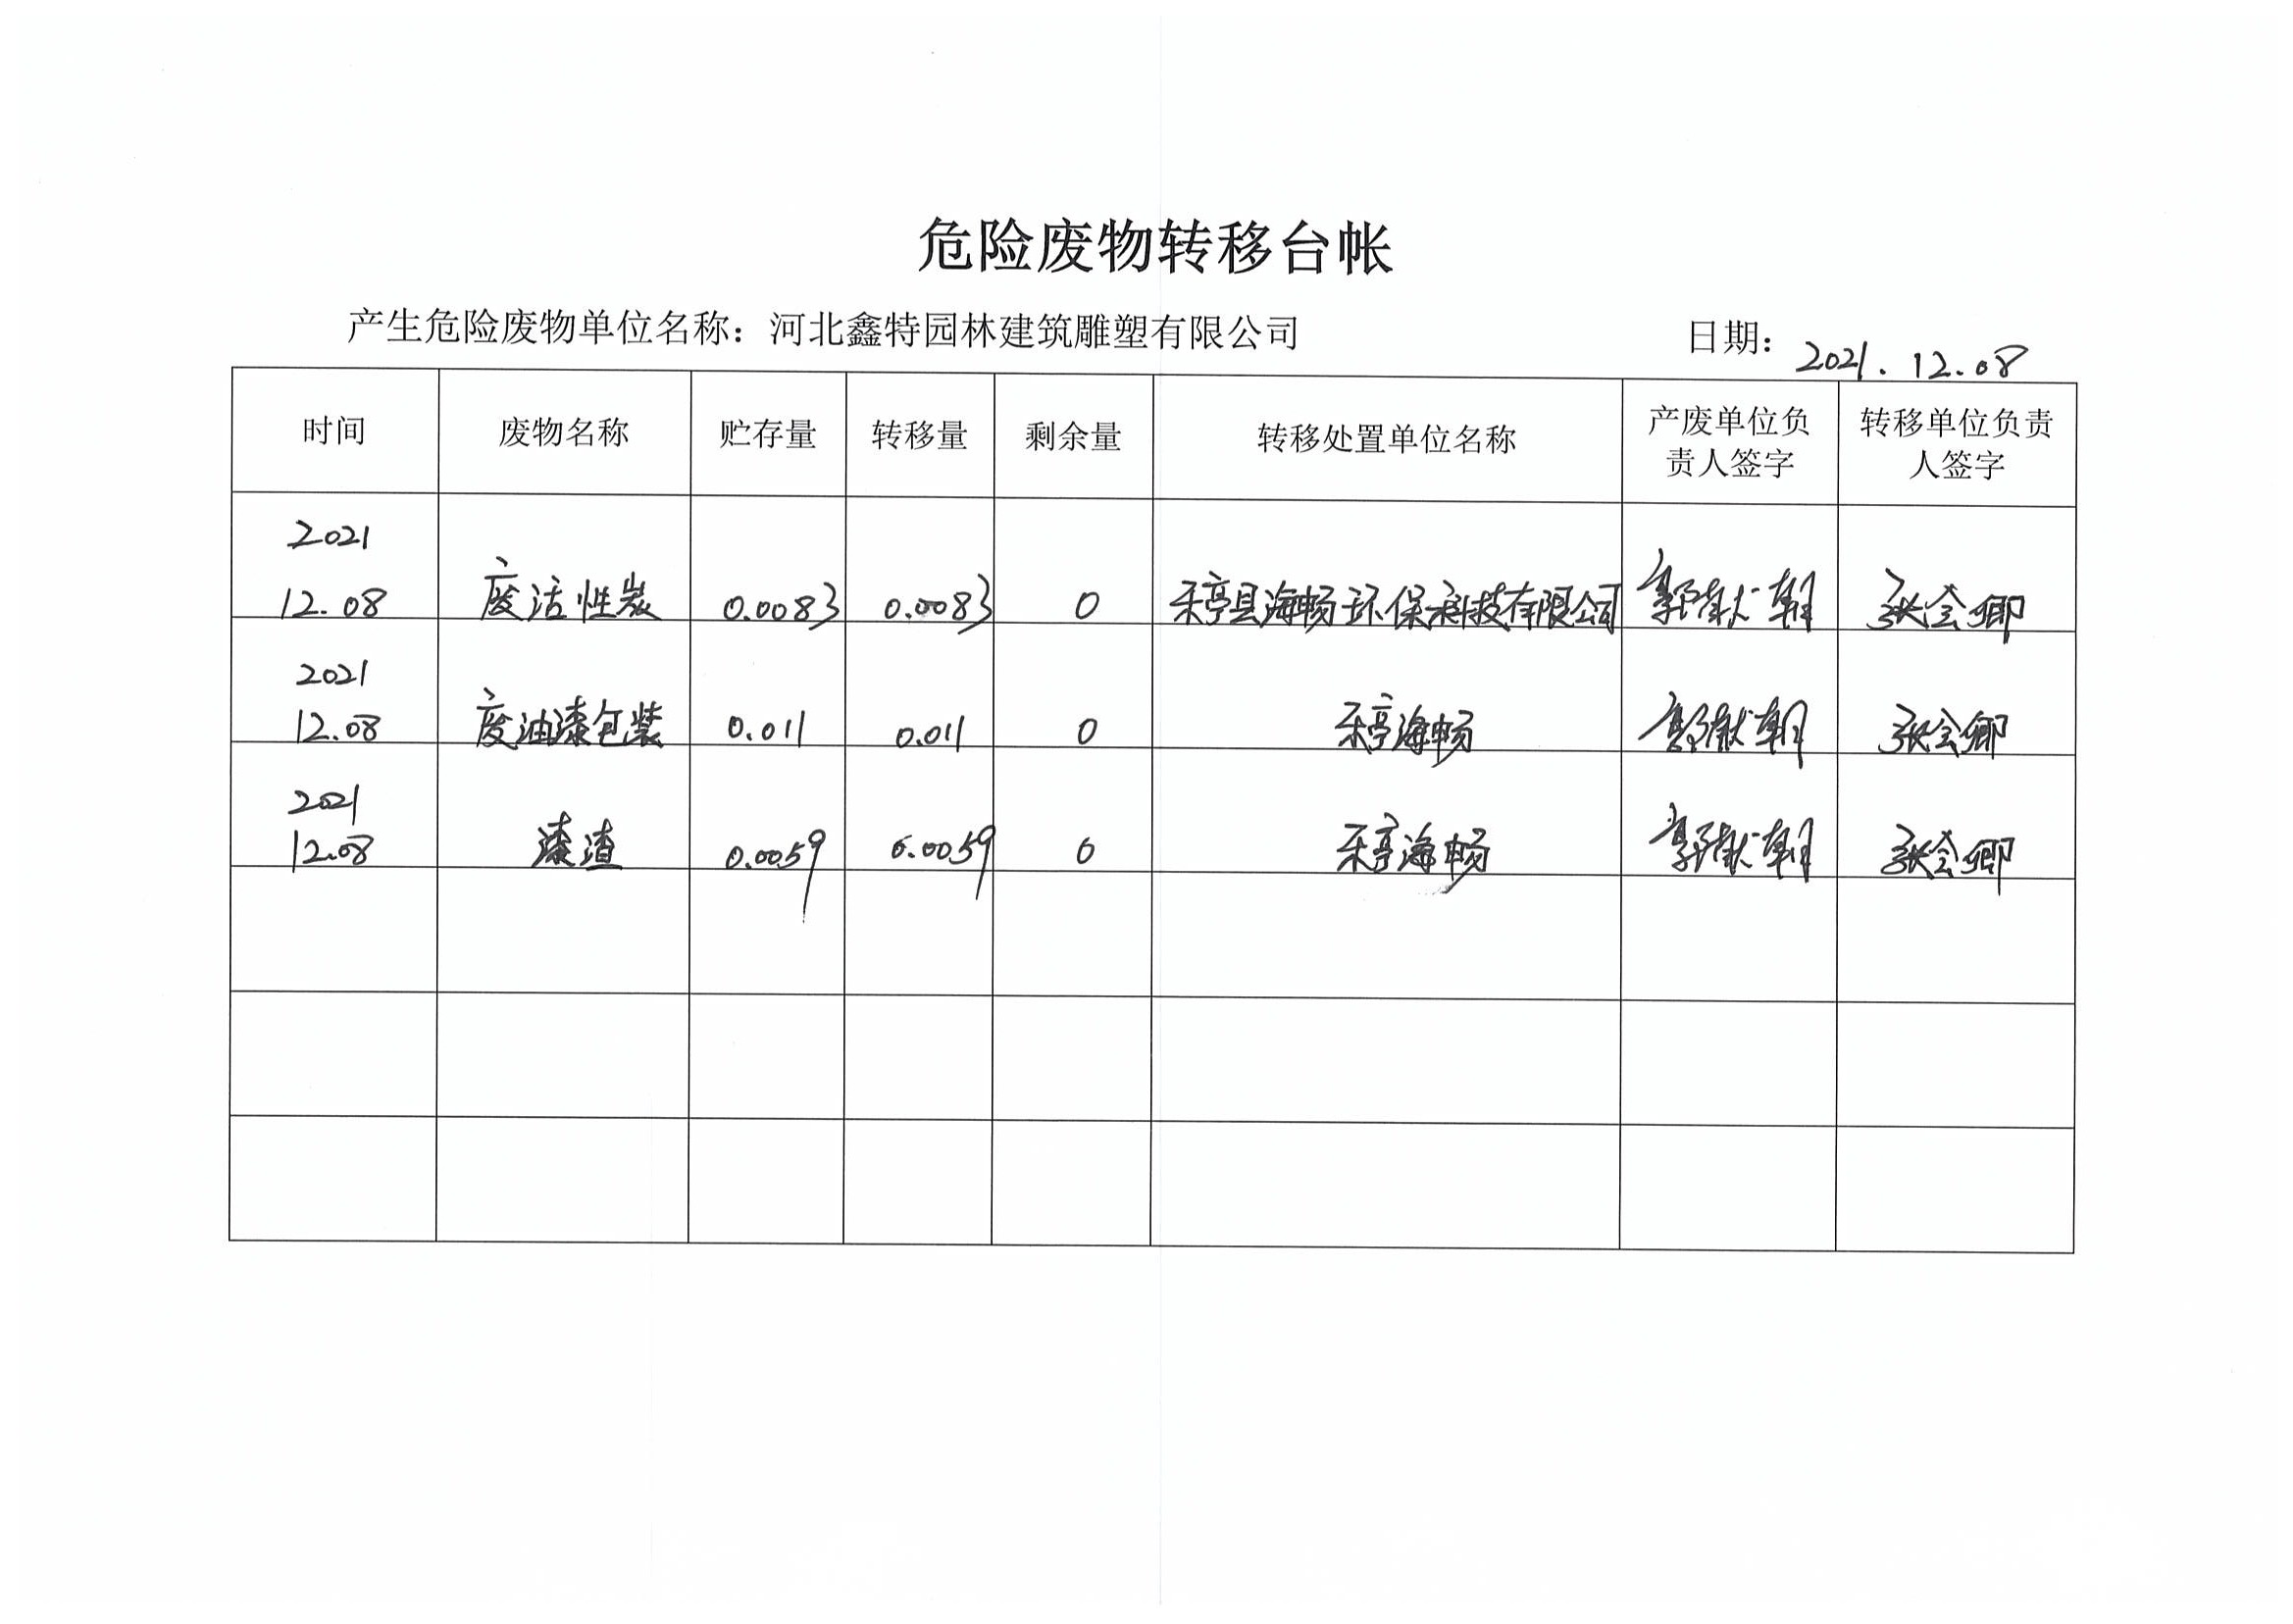 危险废物转移台帐
产生危险废物单位名称：河北鑫特园林建筑雕塑有限公司 日期：2021.12.08
时间 废物名称 贮存量 转移量 剩余量 转移处置单位名称 产废单位负责人签字 转移单位负责人签字
2021
12.08 废活性炭 0.0083 0.0083 0 乐亭县海畅环保科技有限公司 郭献朝 张会卿
2021
12.08 废油漆包装 0.011 0.011 0 乐亭海畅 郭献朝 张会卿
2021
12.08 漆渣 0.0059 0.0059 0 乐亭海畅 郭献朝 张会卿